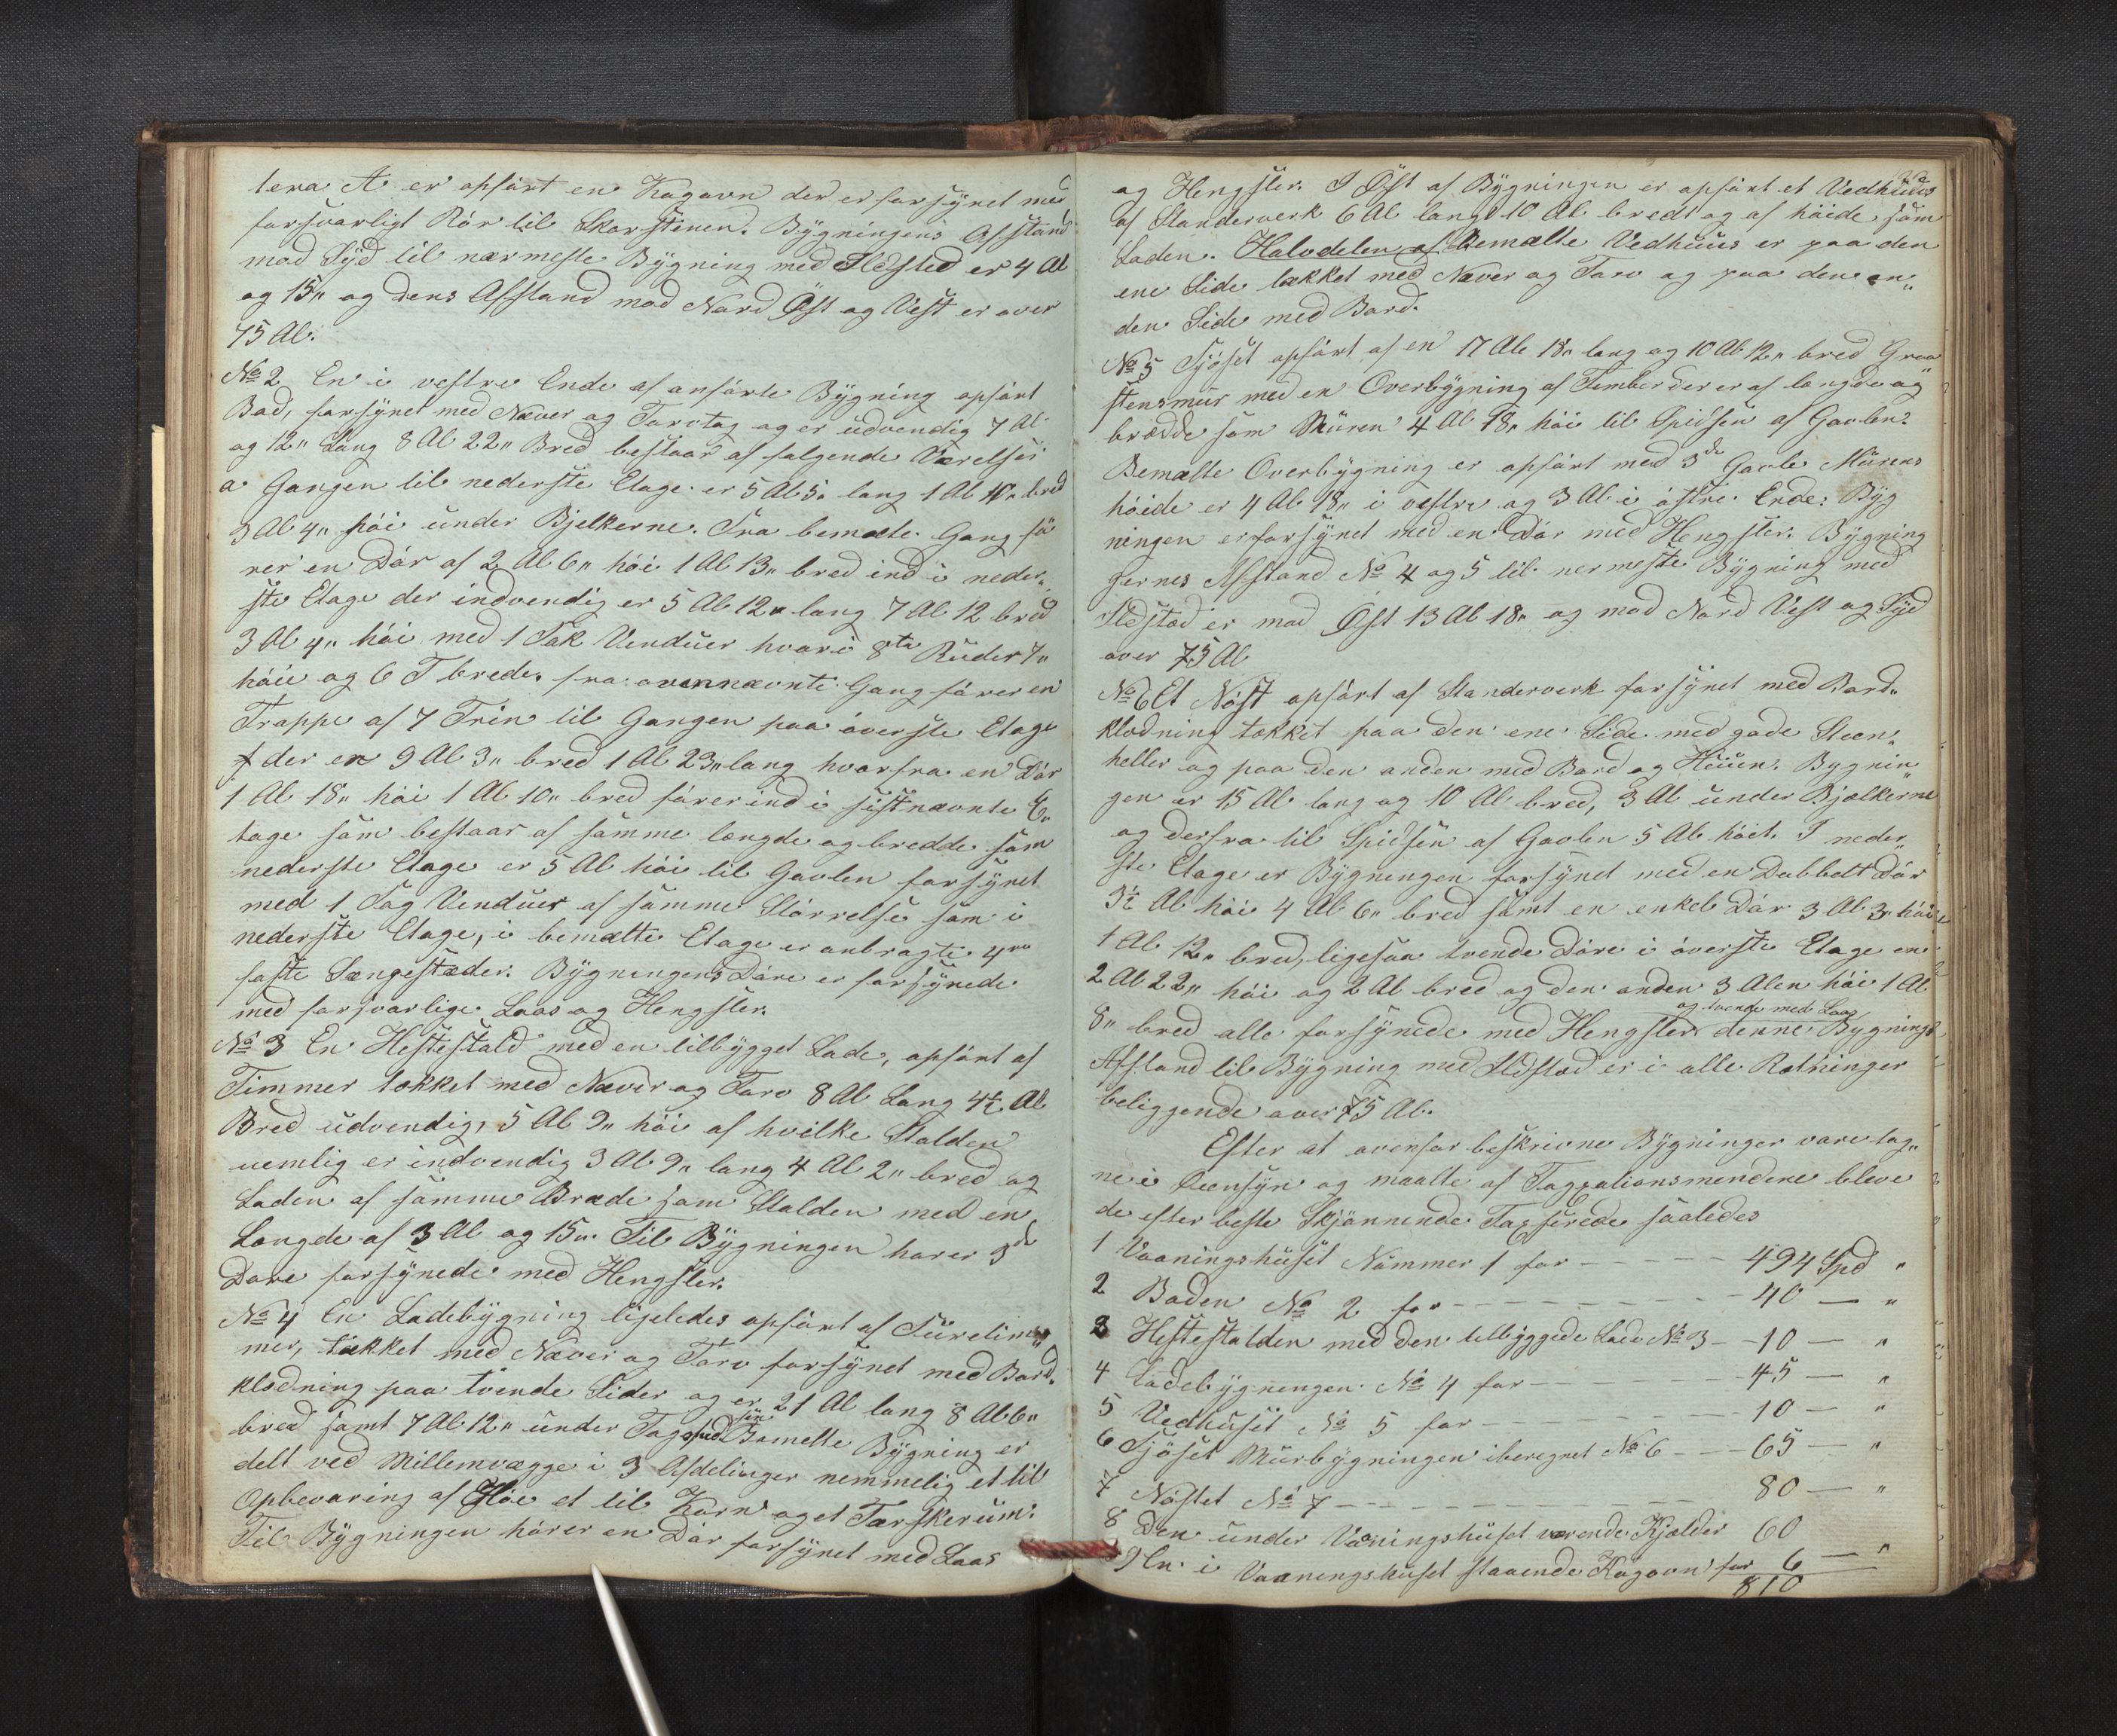 tera A er opført en Kogovn der er forsÿnet med
forsvarligt Rör til Skorstenen. Bÿgningens Afstand
mod Sÿd til nærmeste Bÿgning med Ildsted er 4 Al
og 15" og dens Afstand mod Nord Öst og Vest er over
75 Al.
No 2 En i vestre Ende af anförte Bÿgning opfört
Bod, forsÿnet med Næver og Torvtag og er üdvendig 7 Al
og 12" Lang 8 Al 22" Bred bestaar af folgende Værelser
a Gangen til nederste Etage er 5 Al 5" lang 1 Al 10" bred
3 Al 4" höi ünder Bjelkerne. Fra bemælte Gang fö
rer en Dör af 2 Al 6" höi 1 Al 13" bred ind i neder"
ste Etage der indvendig er 5 Al 12" lang 7 Al 12 bred
3 Al 4" höi med 1 Fak Vendüer hvori 8te Rüder 7"
höie og 6 T brede. fra ovennævnte Gang förer en
Trappe af 7 Trin til Gangen paa överste Etage
der er 9 Al 3" bred 1 Al 23" lang hvorfra en Dör
1 Al 18" höi 1 Al 10" bred förer ind i sistnævnte E"
tage som bestaar af samme længde og bredde som
nederste Etage er 5 Al höi til Gavlen forsÿnet
med 1 Fag Vendüer af samme Störrelse som i
nederste Etage, i bemælte Etage er anbragte 4re
faste Sængestæder. Bÿgningens Döre er forsÿnede
med forsvarlige Laas og Hengsler.
No 3 En Hestestald med en tilbÿgget Lade, opfört af
Timmer tækket med Næver og Torv 8 Al Lang 4½ Al
Bred üdvendig, 5 Al 9" höi af hvilke Stalden
nemlig er indvendig 3 Al 9" lang 4 Al 2" bred og
Laden af samme Brede som Stalden med en
Længde af 3 Al og 15". Til Bÿgningen hører 3de
Döre forsÿnede med Hengsler.
No 4 En Ladebÿgning ligeledes opfört af Füretim"
mer, tækket med Næver og Torv forsÿnet med Bord"
klædning paa tvende Sider og er 21 Al lang 8 Al 6"
bred samt 7 Al 12" under Bemelte Bÿgning er
delt ved Millemvægge i 3 Afdelinger nemmelig et til
Opbevaring af Höe et til Korn og et Tærskerüm.
Til Bÿgningen hörer en Dör forsÿnet med Laas
og Hengsler. I Öst af Bÿgningen er opfört et Vedhüüs
af Standerverk 6 Al langt 10 Al bredt og af höide som
Laden. Halvdelen af bemælte Vedhüüs er paa den
ene Side tækket med Næver og Torv og paa den an"
den Side med Bord.
No 5 Sjöset opfört af en 17 Al 18" lang og 10 Al 12" bred Graa
stensmür med en Overbÿgning af Timber der er af længde og
brædde som Müren 4 Al 18" höi til Spidsen af Gavlen.
Bemælte Overbÿgning er opfört med 3de Gavle Mürens
höide er 4 Al 18" i vestre og 3 Al i östre Ende. Bÿg
ningen er forsÿnet med en Dör med Hengsler. Bÿgning
gernes Afstand No 4 og 5 til nermeste Bÿgning med
Ildsted er mod Öst 13 Al 18" og mod Nord Vest og Sÿd
over 75 Al
No 6 Et Nöst opfört af Standerverk forsÿnet med Bord"
klædning tækket paa den ene Side med gode Steen"
heller og paa den anden med Bord og Bygnin"
gen er 15 Al lang og 10 Al bred, 3 Al ünder Bjælkerne
og derfra til Spidsen af Gavlen 5 Al höit. I neder"
ste Etage er Bÿgningen forsÿnet med en Dobbelt Dör
3½ Al höi 4 Al 6" bred samt en enkelt Dör 3 Al 3" höi
1 Al 12" bred, ligesaa tvende Döre i överste Etage en
2 Al 22" höi og 2 Al bred og den anden 3 Alen höi 1 Al
og tvende med Laas
8" bred alle forsÿnede med Hengsler denne Bÿgnings
Afstand til Bÿgning med Ildsted er i alle Retninger
beliggende over 75 Al.
Efter at ovenfor beskrivne Bÿgninger vare tag"
ne i Öiensÿn og maalte af Taxationsmendene bleve
de efter beste Skjönnende Taxserede saaledes
1 Vaaningshüset Nümmer 1 for - - - - - 494 Spd "
2 Boden No 2 for - - - - - - - - 40 — "
3 Hestestalden med den tilbÿggede Lade No 3 - 10 — "
4 Ladebÿgningen No 4 for - - - - - 45 — "
5 Vedhüset No 5 for - - - - - - 10 — "
6 Sjöset Mürbÿgningen iberegnet No 6 - - - 65 — "
7 Nöstet No 7 - - - - - - - - 80 — "
8 Den ünder Vaaningshüset værende Kjælder 60
9 En i Vaaningshüset staaende Kogovn for 6 — "
810